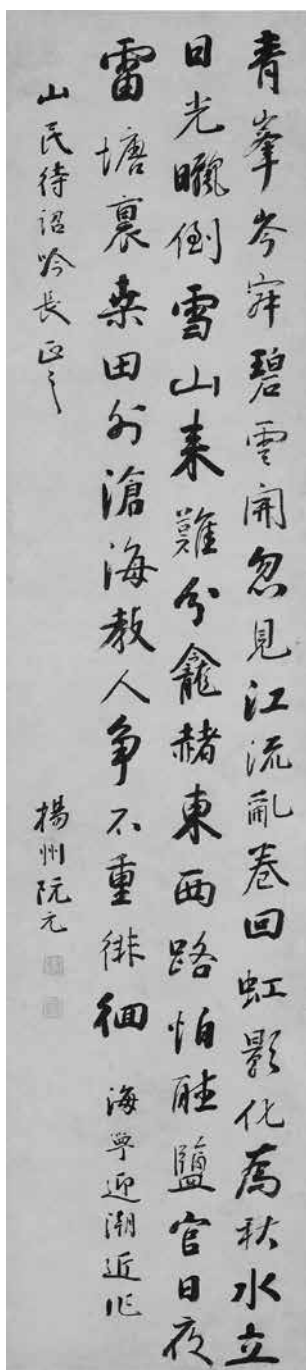 青峯岑寂碧雲開忽見江流亂卷回虹影化為秋水立
日光曬倒雪山来難分龕赭東西路怕聽鹽官日夜
雷塘裏桑田外滄海教人争不重徘徊 海寧迎潮近作
山民待詔吟長正之 楊州阮元